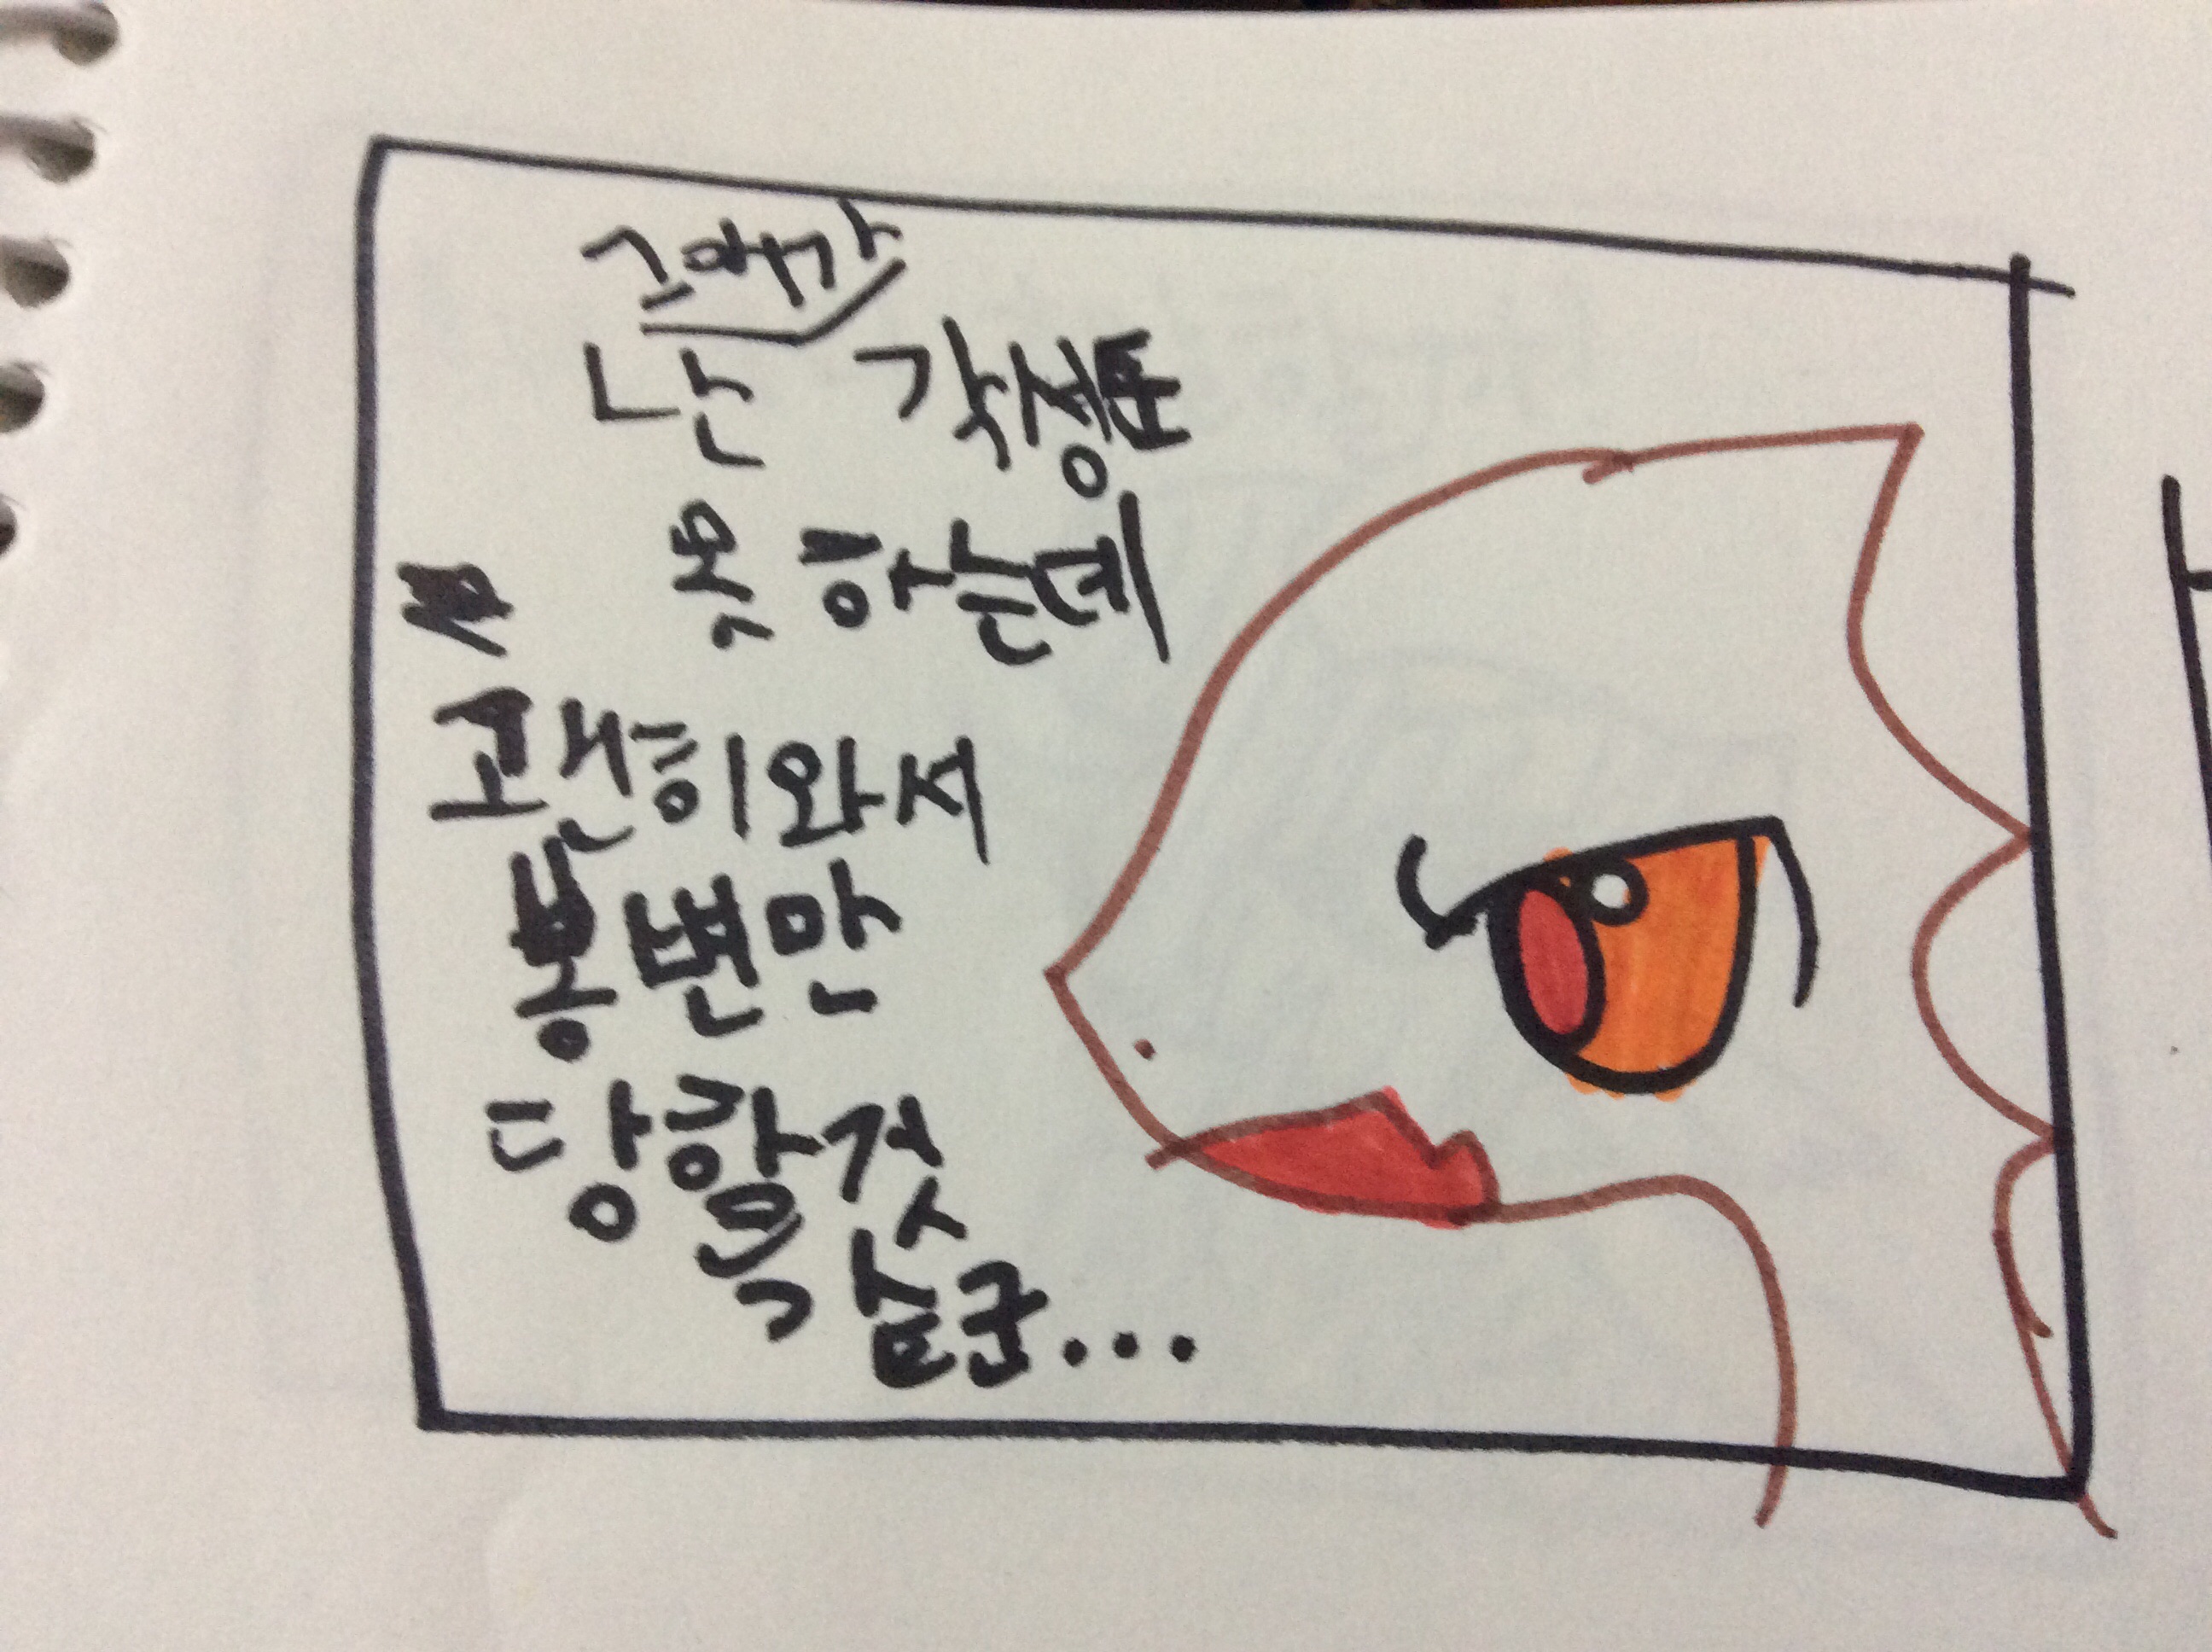 그아가
난 각성도
못 하는데
괜히와서
봉변만
당할것
같군...